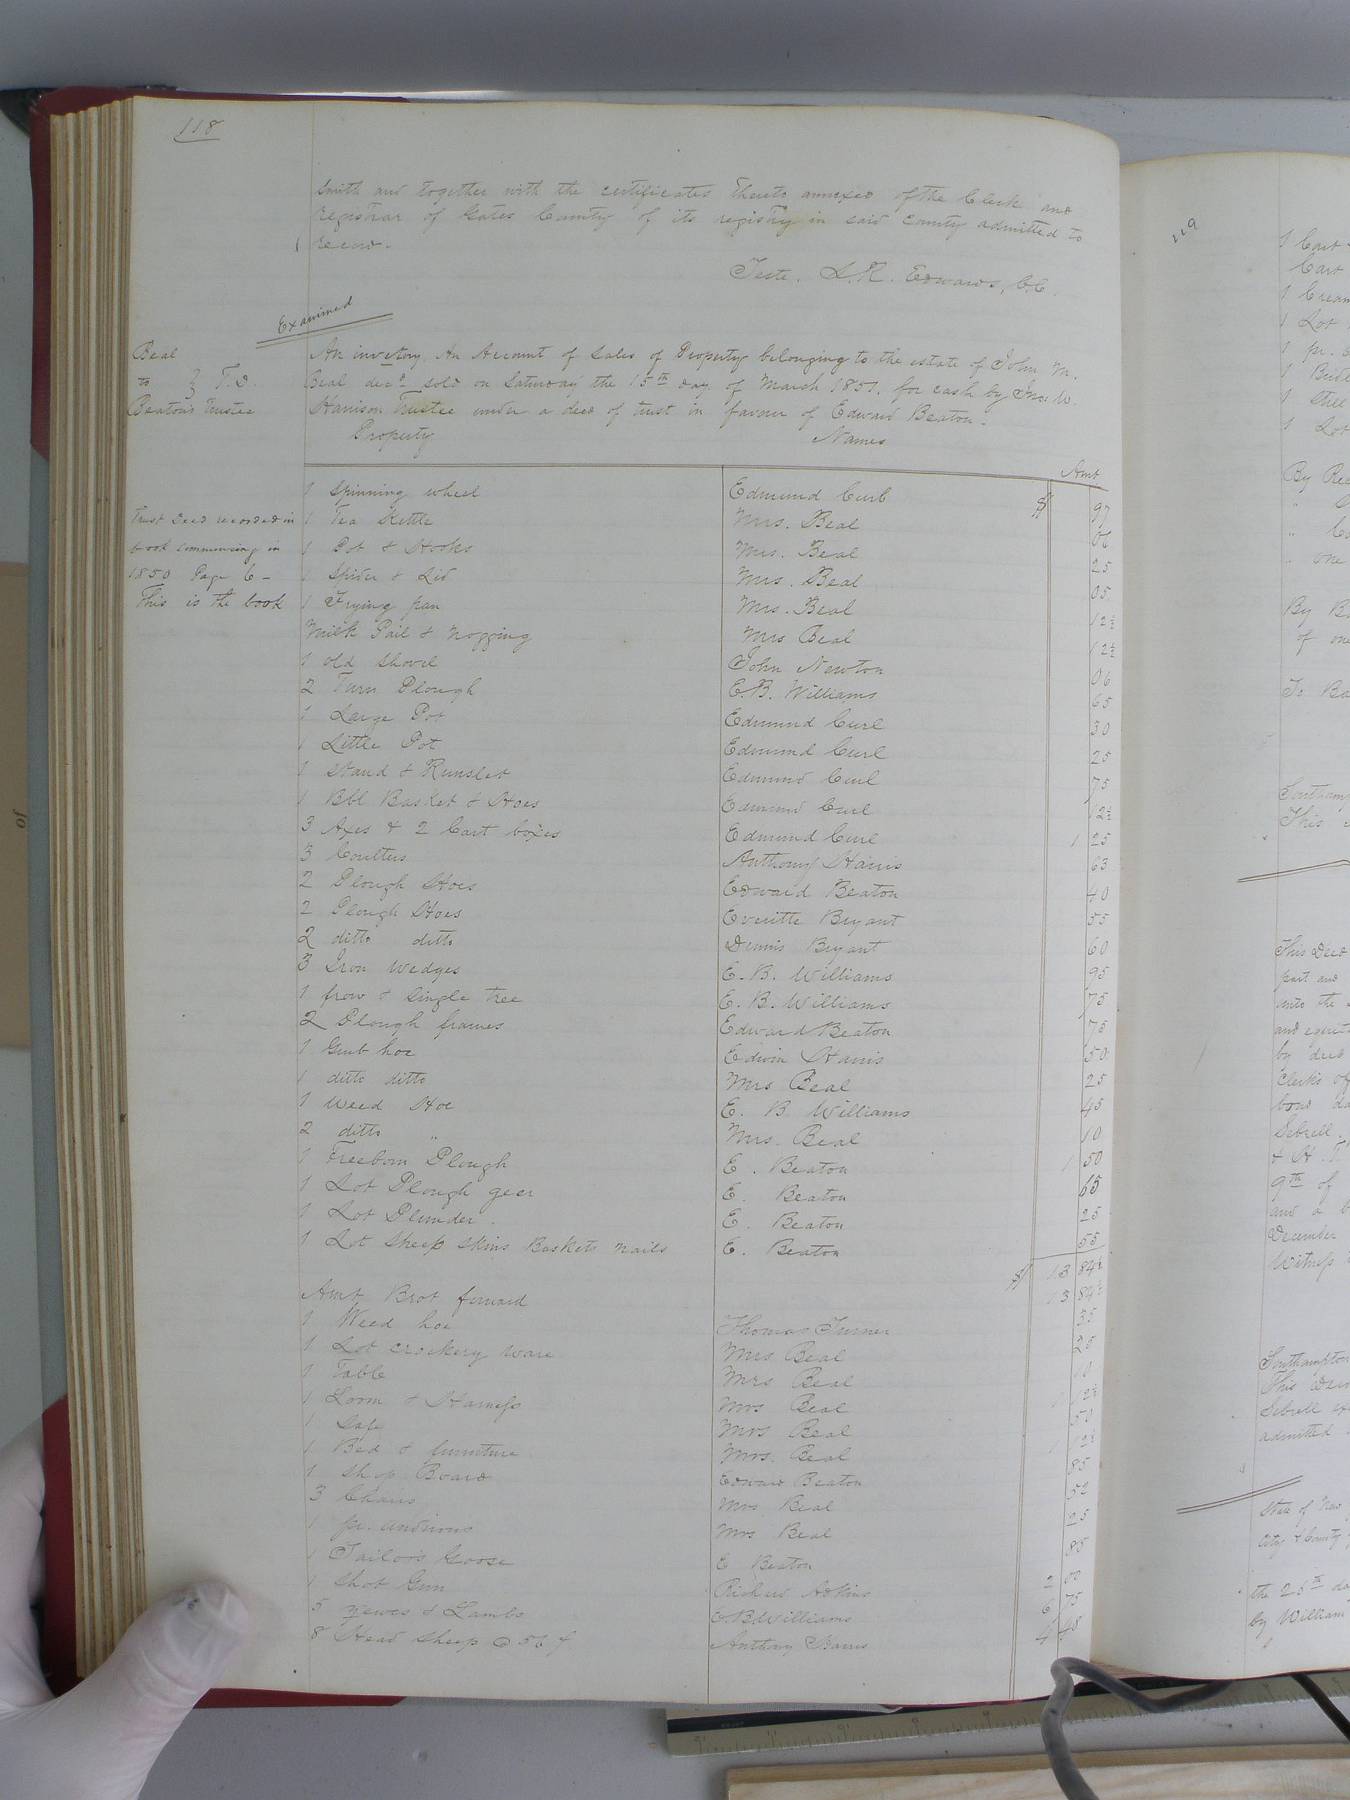 118
Smith and together with the certificates thereto annexed of the Clerk and
registrar of Gates County of its registry in said County admitted to
record.
Teste. L. R. Edwards, C.C.
Examined
Beal
to } T.D.
Beaton's Trustee
An inventory An Account of Sales of Property belonging to the estate of John M.
Beal decd. sold on Saturday the 15th day of March 1851. for cash by Jno. W.
Harrison Trustee under a deed of trust in favour of Edward Beaton.
Property Names Amt
Trust Deed recorded in
book commencing in
1850 Page 6 -
This is the book
1 Spinning wheel Edmund Curl $ 97
1 Tea Kettle Mrs. Beal 06
1 Pot & Hooks Mrs. Beal 25
1 Spider & Lid Mrs. Beal 05
1 Frying pan Mrs. Beal 12½
Milk Pail & nogging Mrs Beal 12½
1 old shovel John Newton 06
2 Turn Plough E.B. Williams 65
1 Large Pot Edmund Curl 30
1 Little Pot Edmund Curl 25
1 Stand & Runslet Edmund Curl 75
1 Bbl Basket & Hoes Edmund Curl 12½
3 Axes & 2 Cart boxes Edmund Curl 1 25
3 Coulters Anthony Harris 63
2 Plough Hoes Edward Beaton 40
2 Plough Hoes Everitte Bryant 55
2 ditto ditto Dennis Bryant 60
3 Iron Wedges E. B. Williams 95
1 frow & single tree E. B. Williams 75
2 Plough frames Edward Beaton 75
1 Grub hoe Edwin Harris 50
1 ditto ditto Mrs Beal 25
1 Weed Hoe E. B. Williams 45
2 ditto " Mrs. Beal 10
1 Freeborn Plough E. Beaton 1 50
1 Lot Plough gear E. Beaton 65
1 Lot Plunder. E. Beaton 25
1 Lot Sheep skins Baskets nails E. Beaton 55
$ 13 84½
Amt Brot forward 13 84½
1 Weed hoe Thomas Turner 35
1 Lot crockery ware Mrs Beal 25
1 Table Mrs Beal 10
1 Loom & Harness Mrs Beal 1 12½
1 Safe Mrs Beal 50
1 Bed & furniture Mrs. Beal 1 12½
1 Shop Board Edward Beaton 85
3 Chairs Mrs Beal 52
1 pr. andirons Mrs Beal 25
1 Tailors Goose E Beaton 85
1 Shot Gun Richard Adkins 2 00
5 yewes & Lambs E.B. Williams 6 75
8 Head sheep @ 56 ¢ Anthony Harris 4 48
119
1 Cart
Cart
1 Cream
1 Lot
1 pr.
1 Bridle
1 Still
1 Lot
By Rec
" one
By B
of one
To Ba
Southamp
This
This Deed
part and
unto the
and execut
by deed
Clerks of
bond da
Sebrell.
& H. T
9th of
and a b
December
Witness
Southampton
This Deed
Sebrell
admitted
State of New
City & County
the 26th da
by William